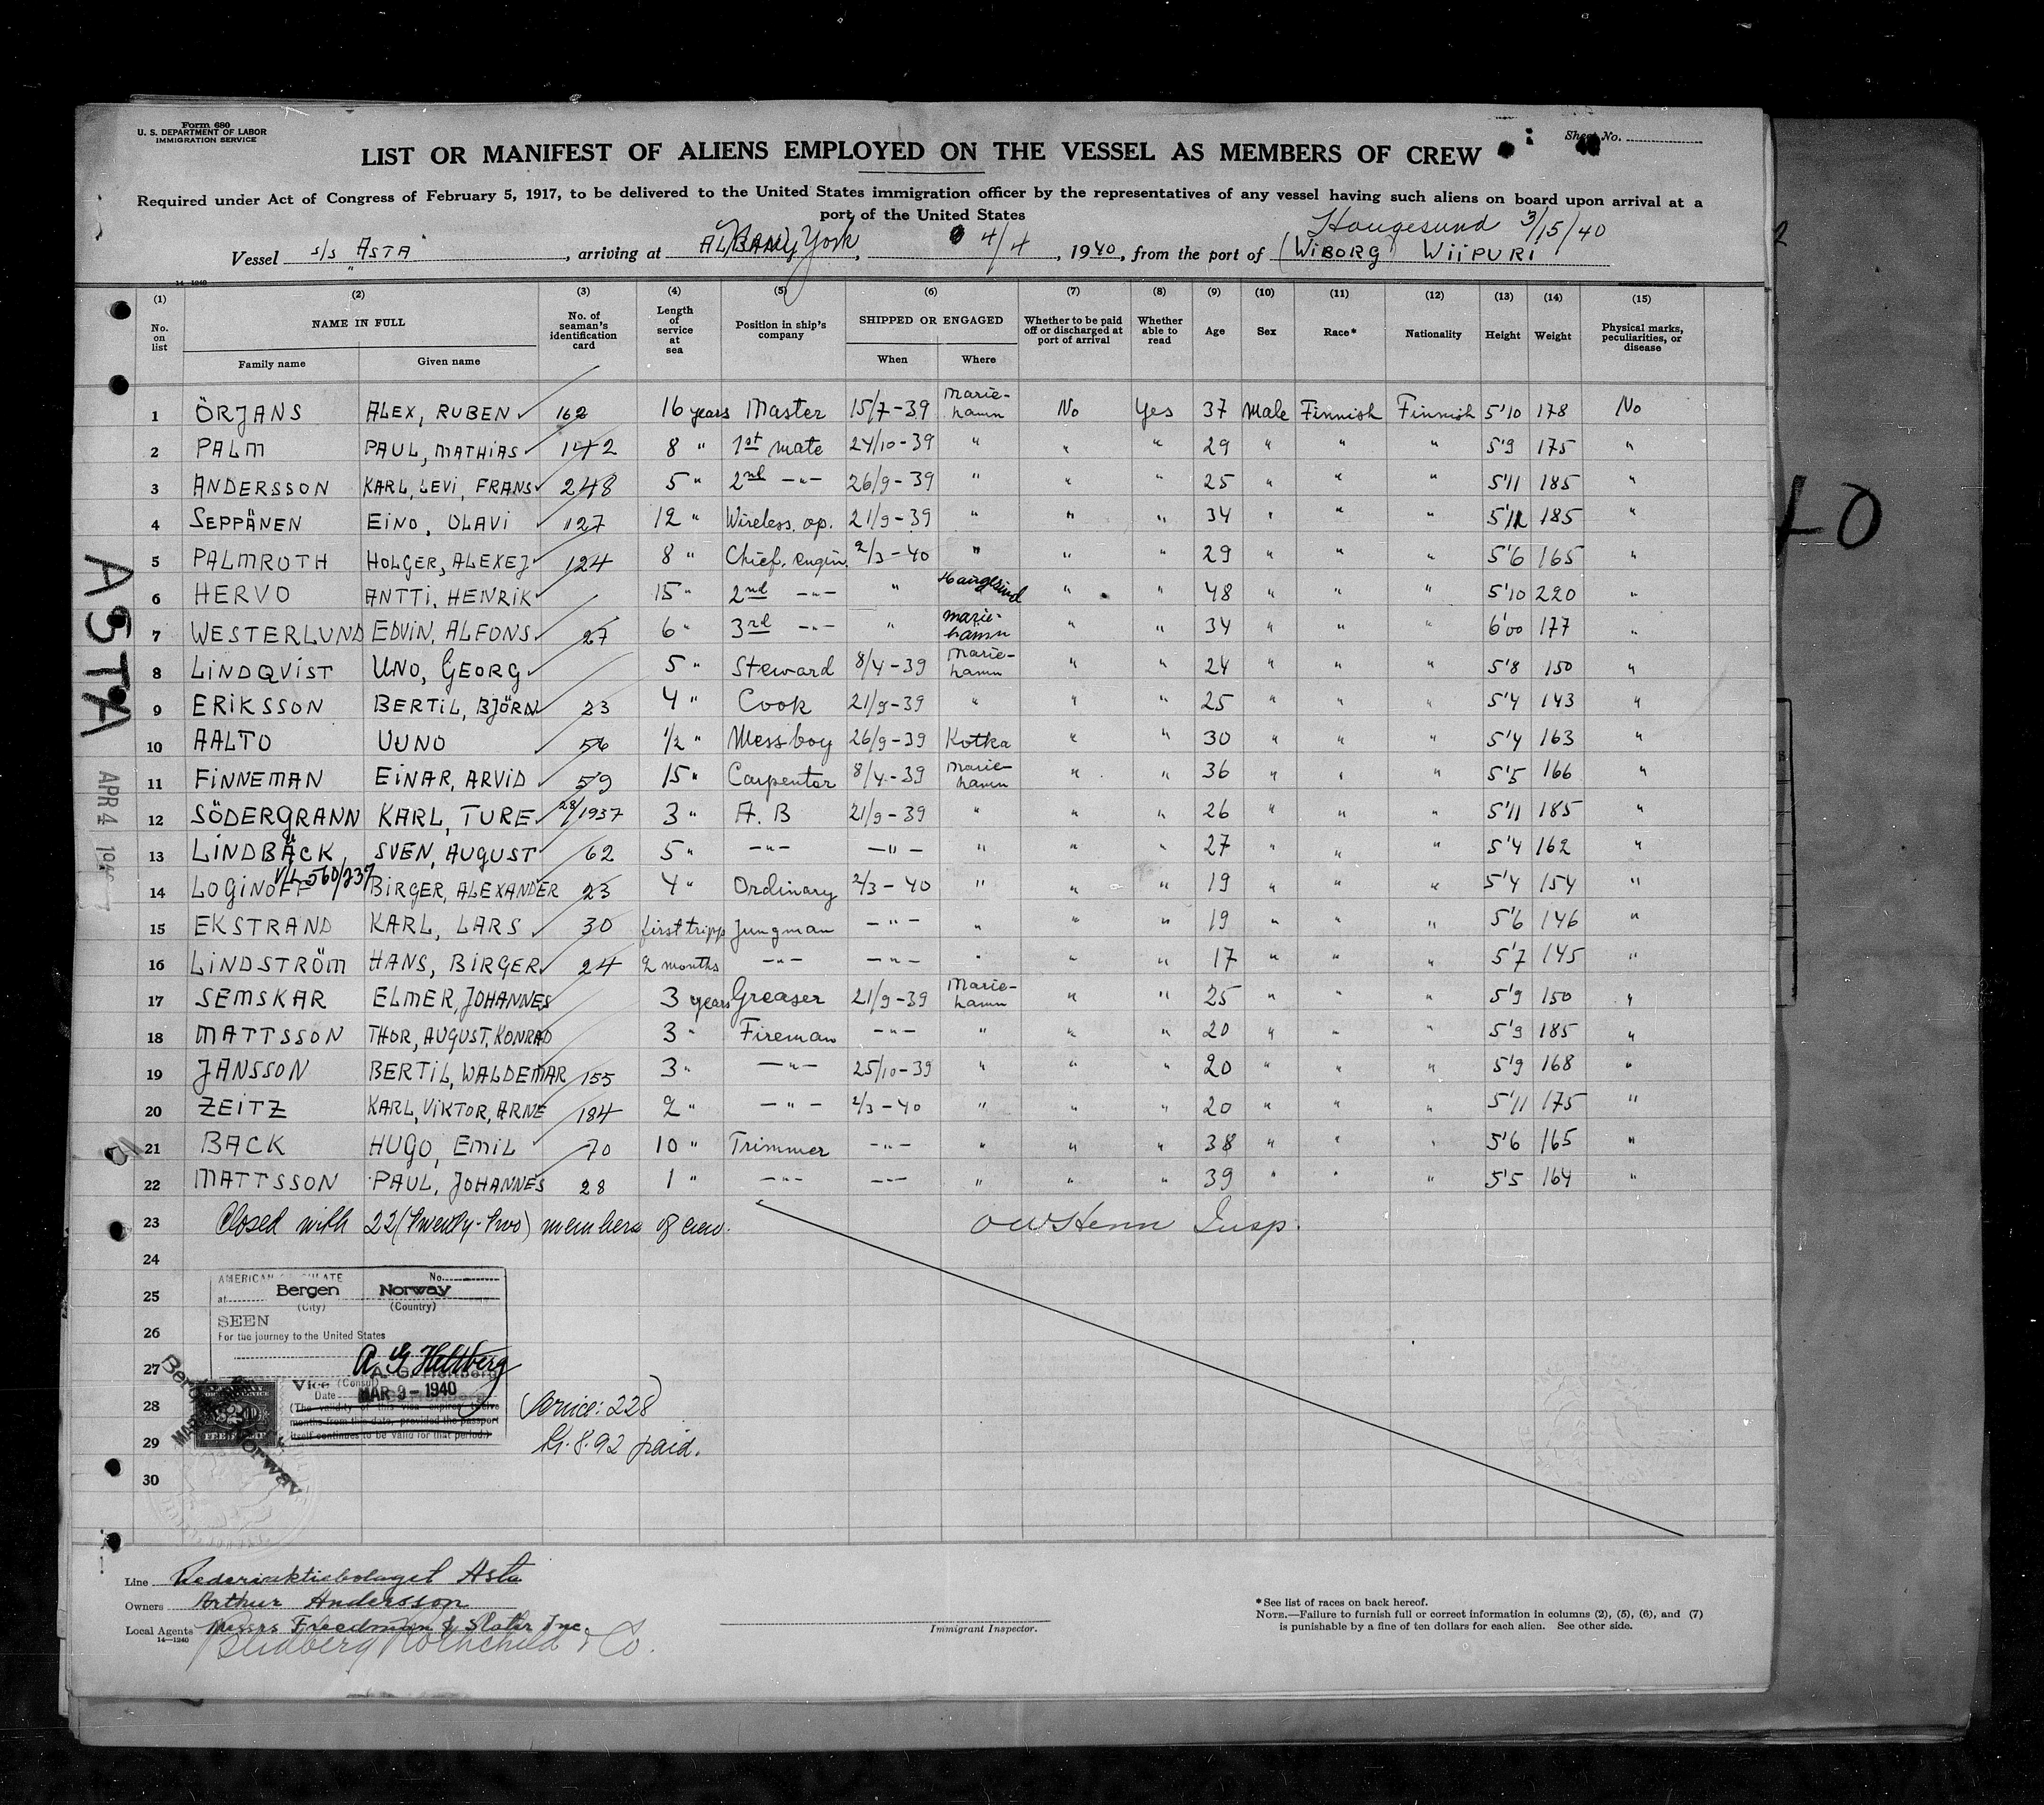 Form 680
U. S. DEPARTMENT OF LABOR
IMMIGRATION SERVICE
Sheet No.
LIST OR MANIFEST OF ALIENS EMPLOYED ON THE VESSEL AS MEMBERS OF CREW
Required under Act of Congress of February 5, 1917, to be delivered to the United States immigration officer by the representatives of any vessel having such aliens on board upon arrival at a
port of the United States
Haugesund 3/15/40
Vessel s/s ASTA, arriving at ALBANY New York, 4/4, 1940, from the port of (WIBORG) WIIPURI
14-1240
(1) (2) (3) (4) (5) (6) (7) (8) (9) (10) (11) (12) (13) (14) (15)
No. on list NAME IN FULL Family name Given name No. of seaman's identification card Length of service at sea Position in ship's company SHIPPED OR ENGAGED When Where Whether to be paid off or discharged at port of arrival Whether able to read Age Sex Race* Nationality Height Weight Physical marks, peculiarities, or disease
1 ÖRJANS ALEX, RUBEN 162 16 years Master 15/7-39 Marie-hamn No Yes 37 Male Finnish Finnish 5'10 178 No
2 PALM PAUL, MATHIAS 142 8 " 1st mate 24/10-39 " " " 29 " " " 5'9 175 "
3 ANDERSSON KARL, LEVI, FRANS 248 5 " 2nd -"- 26/9-39 " " " 25 " " " 5'11 185 "
4 SEPPÄNEN EINO, OLAVI 127 12 " Wireless. op. 21/9-39 " " " 34 " " " 5'11 185 "
5 PALMROTH HOLGER, ALEXEJ 124 8 " Chief. engin. 2/3-40 " " " 29 " " " 5'6 165 "
6 HERVO ANTTI, HENRIK 15 " 2nd -"- " Haugesund " " 48 " " " 5'10 220 "
7 WESTERLUND EDVIN, ALFONS 27 6 " 3rd -"- " Marie-hamn " " 34 " " " 6'00 177 "
8 LINDQVIST UNO, GEORG 5 " Steward 8/4-39 Marie-hamn " " 24 " " " 5'8 150 "
9 ERIKSSON BERTIL, BJÖRN 23 4 " Cook 21/9-39 " " " 25 " " " 5'4 143 "
10 AALTO UUNO 56 1/2 " Messboy 26/9-39 Kotka " " 30 " " " 5'4 163 "
11 FINNEMAN EINAR, ARVID 59 15 " Carpenter 8/4-39 Marie-hamn " " 36 " " " 5'5 166 "
12 SÖDERGRANN KARL, TURE 28/1937 3 " A. B 21/9-39 " " " 26 " " " 5'11 185 "
13 LINDBÄCK SVEN, AUGUST 62 5 " -"- -"- " " " 27 " " " 5'4 162 "
14 LOGINOFF BIRGER, ALEXANDER 23 4 " Ordinary 2/3-40 " " " 19 " " " 5'4 154 "
15 EKSTRAND KARL, LARS 30 first tripp Jungman -"- " " " 19 " " " 5'6 146 "
16 LINDSTRÖM HANS, BIRGER 24 2 months -"- -"- " " " 17 " " " 5'7 145 "
17 SEMSKAR ELMER, JOHANNES 3 years Greaser 21/9-39 Marie-hamn " " 25 " " " 5'9 150 "
18 MATTSSON THOR, AUGUST, KONRAD 3 " Fireman -"- " " " 20 " " " 5'9 185 "
19 JANSSON BERTIL, WALDEMAR 155 3 " -"- 25/10-39 " " " 20 " " " 5'9 168 "
20 ZEITZ KARL, VIKTOR, ARNE 184 2 " -"- 2/3-40 " " " 20 " " " 5'11 175 "
21 BACK HUGO, EMIL 70 10 " Trimmer -"- " " " 38 " " " 5'6 165 "
22 MATTSSON PAUL, JOHANNES 28 1 " -"- -"- " " " 39 " " " 5'5 164 "
23 Closed with 22 (twenty-two) members of crew. Insp.
24
25
26
27
28
29
30
ASTA
APR 4
AMERICAN CONSULATE No.
at Bergen Norway
(City) (Country)
SEEN
For the journey to the United States
A. G. Heltberg
Vice (Consul)
Date MAR 9 - 1940
(The validity of this visa expires twelve
months from this date, provided the passport
itself continues to be valid for that period.)
Bergen Norway
Service: 228
Kr. 8.92 paid.
Line Rederiaktiebolaget Asta
Owners Arthur Andersson
Local Agents Messrs Freedman & Slater Inc.
14-1240
Rothchild & Co.
Immigrant Inspector.
*See list of races on back hereof.
NOTE.—Failure to furnish full or correct information in columns (2), (5), (6), and (7)
is punishable by a fine of ten dollars for each alien. See other side.
40